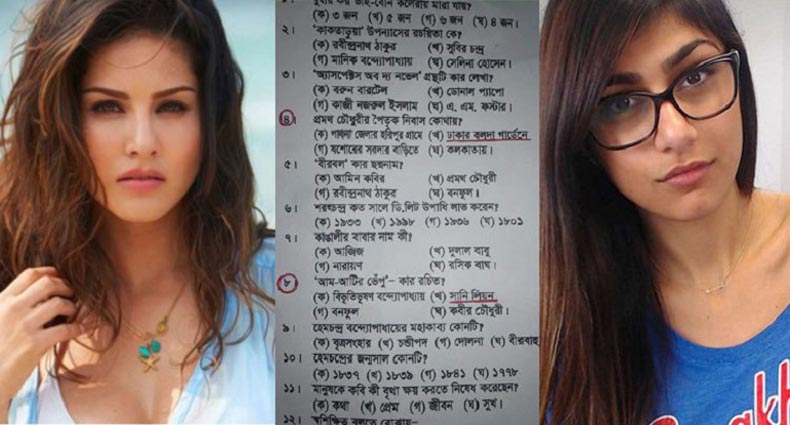 (ক) ৩ জন (খ) ৫ জন (গ) ৬ জন (ঘ) ৪ জন।
২। 'কাকতাড়ুয়া' উপন্যাসের রচয়িতা কে?
(ক) রবীন্দ্রনাথ ঠাকুর (খ) সুবির চন্দ্র
(গ) মানিক বন্দ্যোপাধ্যায় (ঘ) সেলিনা হোসেন।
৩। 'অ্যাসপেক্টস অব দ্য নভেল' গ্রন্থটি কার লেখা?
(ক) বরুন বারটেল (খ) ডোনাল প্যাপো
(গ) কাজী নজরুল ইসলাম (ঘ) এ. এম. ফস্টার।
৪। প্রমথ চৌধুরীর পৈতৃক নিবাস কোথায়?
(ক) পাবনা জেলার হরিপুর গ্রামে (খ) ঢাকার বলদা গার্ডেনে
(গ) যশোরের সরদার বাড়িতে (ঘ) কলকাতায়।
৫। 'বীরবল' কার ছদ্মনাম?
(ক) আমিন কবির (খ) প্রমথ চৌধুরী
(গ) রবীন্দ্রনাথ ঠাকুর (ঘ) বনফুল।
৬। শরৎচন্দ্র কত সালে ডি.লিট উপাধি লাভ করেন?
(ক) ১৯৩৩ (খ) ১৯৯৮ (গ) ১৯৩৬ (ঘ) ১৮০১
৭। কাঙালীর বাবার নাম কী?
(ক) আজিজ (খ) দুলাল বাবু
(গ) নারায়ণ (ঘ) রসিক বাঘ।
৮। 'আম-আঁটির ভেঁপু'– কার রচিত?
(ক) বিভূতিভূষণ বন্দ্যোপাধ্যায় (খ) সানি লিয়ন
(গ) বনফুল (ঘ) কবীর চৌধুরী।
৯। হেমচন্দ্র বন্দোপাধায়ের মহাকাব্য কোনটি?
(ক) বৃত্রসংহার (খ) চণ্ডীপদ (গ) দোলনা (ঘ) বীরবাহু
১০। হেমচন্দ্রের জন্মসাল কোনটি?
(ক) ১৮৩৭ (খ) ১৮৩৯ (গ) ১৮৪১ (ঘ) ১৭৭৮
১১। মানুষকে কবি কী বৃথা ক্ষয় করতে নিষেধ করেছেন?
(ক) কথা (খ) প্রেম (গ) জীবন (ঘ) সুখ।